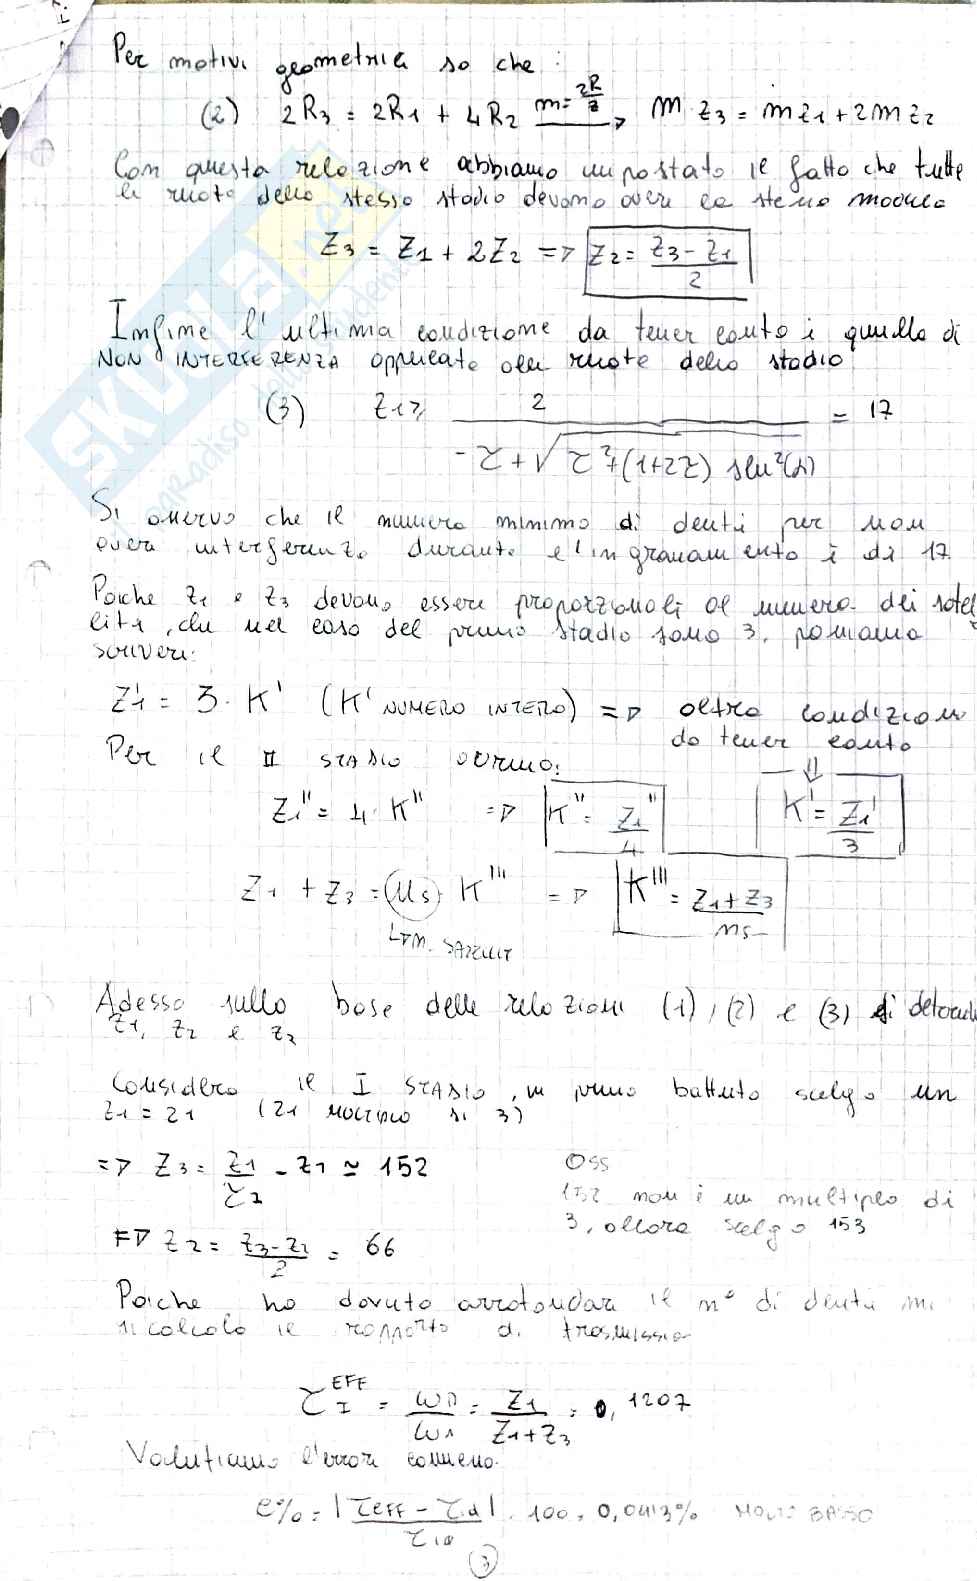 Per motivi geometrici so che :
(2) 2R3 = 2R1 + 4R2 m=2R/z → m z3 = m z1 + 2m z2
Con questa relazione abbiamo impostato il fatto che tutte
le ruote dello stesso stadio devono avere lo stesso modulo
Z3 = Z1 + 2Z2 => Z2 = (Z3 - Z1)/2
Infine l'ultima condizione da tener conto è quella di
NON INTERFERENZA applicate alle ruote dello stadio
(3) Z1 ≥ 2/(-τ + √(τ² + (1+2τ) sen²(α))) = 17
Si osserva che il numero minimo di denti per non
avere interferenza durante l'ingranamento è di 17
Poiche z1 e z3 devono essere proporzionali al numero dei satel
liti, che nel caso del primo stadio sono 3, possiamo
scrivere:
Z1' = 3 · K' (K' NUMERO INTERO) => altra condizione
da tener conto
Per il II STADIO avremo:
⇓
Z1'' = 4 · K'' => K'' = Z1''/4 K' = Z1'/3
Z1 + Z3 = ns · K''' => K''' = (Z1 + Z3)/ns
↳ n. SATELLITI
Adesso sulla base delle relazioni (1), (2) e (3) si
Z1, Z2 e Z3
Considero il I STADIO, in primo battuto scelgo un
Z1 = 21 (21 MULTIPLO DI 3)
=> Z3 = Z1/τI - Z1 ≃ 152
Oss
152 non è un multiplo di
3, allora scelgo 153
=> Z2 = (Z3 - Z1)/2 = 66
Poiche ho dovuto arrotondare il n° di denti mi
ricalcolo il rapporto di trasmissione
τI EFF = ωP/ωA = Z1/(Z1 + Z3) = 0,1207
Valutiamo l'errore commesso.
e% = |τEFF - τid|/τid · 100 = 0,0413% MOLTO BASSO
3
SKUOLA.net
il paradiso dello studente